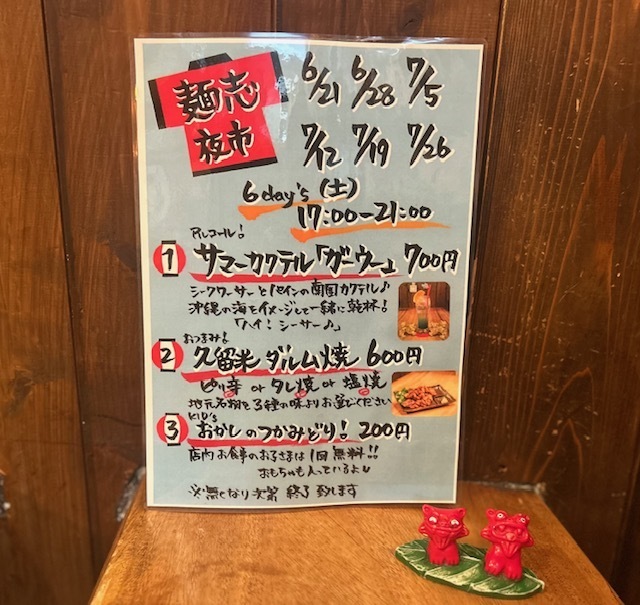 麺志
夜市
6/21 6/28 7/5
7/12 7/19 7/26
6day's (土)
17:00-21:00
アルコール!
1 サマーカクテル「ガーウー」700円
シークワーサーとパインの南国カクテル♪
沖縄の海をイメージして一緒に乾杯!
「ハイ!シーサー♪」
おつまみ!
2 久留米ダルム焼 600円
ピリ辛 or タレ焼 or 塩焼
地元名物を3種の味よりお選びください
KID's
3 おかしのつかみどり! 200円
店内お食事のお子さまは1回無料!!
おもちゃも入っているよ
※無くなり次第 終了致します